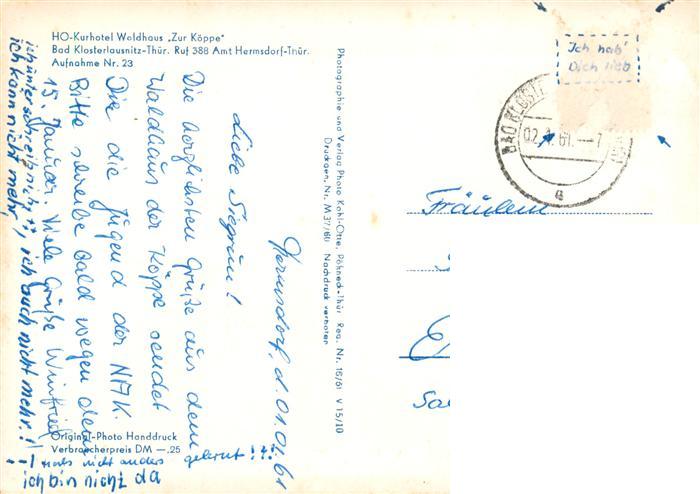 HO-Kurhotel Waldhaus „Zur Köppe"
Bad Klosterlausnitz-Thür. Ruf 388 Amt Hermsdorf-Thür.
Aufnahme Nr. 23
Hermsdorf, d. 01.01.61
Liebe Siegrun!
Die herzlichsten Grüße aus dem
Waldhaus der Köppe sendet
Dir die Jugend der NAK.
Bitte schreibe bald wegen dem
15. Januar. Viele Grüße Winfried
ich unterschreib nicht, ich auch nicht mehr!
ich kann nicht mehr,
Original-Photo Handdruck
Verbraucherpreis DM —.25
nicht anders gelernt!!!
ich bin nicht da
Photographie und Verlag Photo Kahl-Otte, Pößneck-Thür Reg. Nr. 16/61 V 15/10
Druckgen. Nr. M 37/60 Nachdruck verboten
Ich hab'
Dich lieb
BAD KLOSTE
02.1.61.—7
a
Fräulein